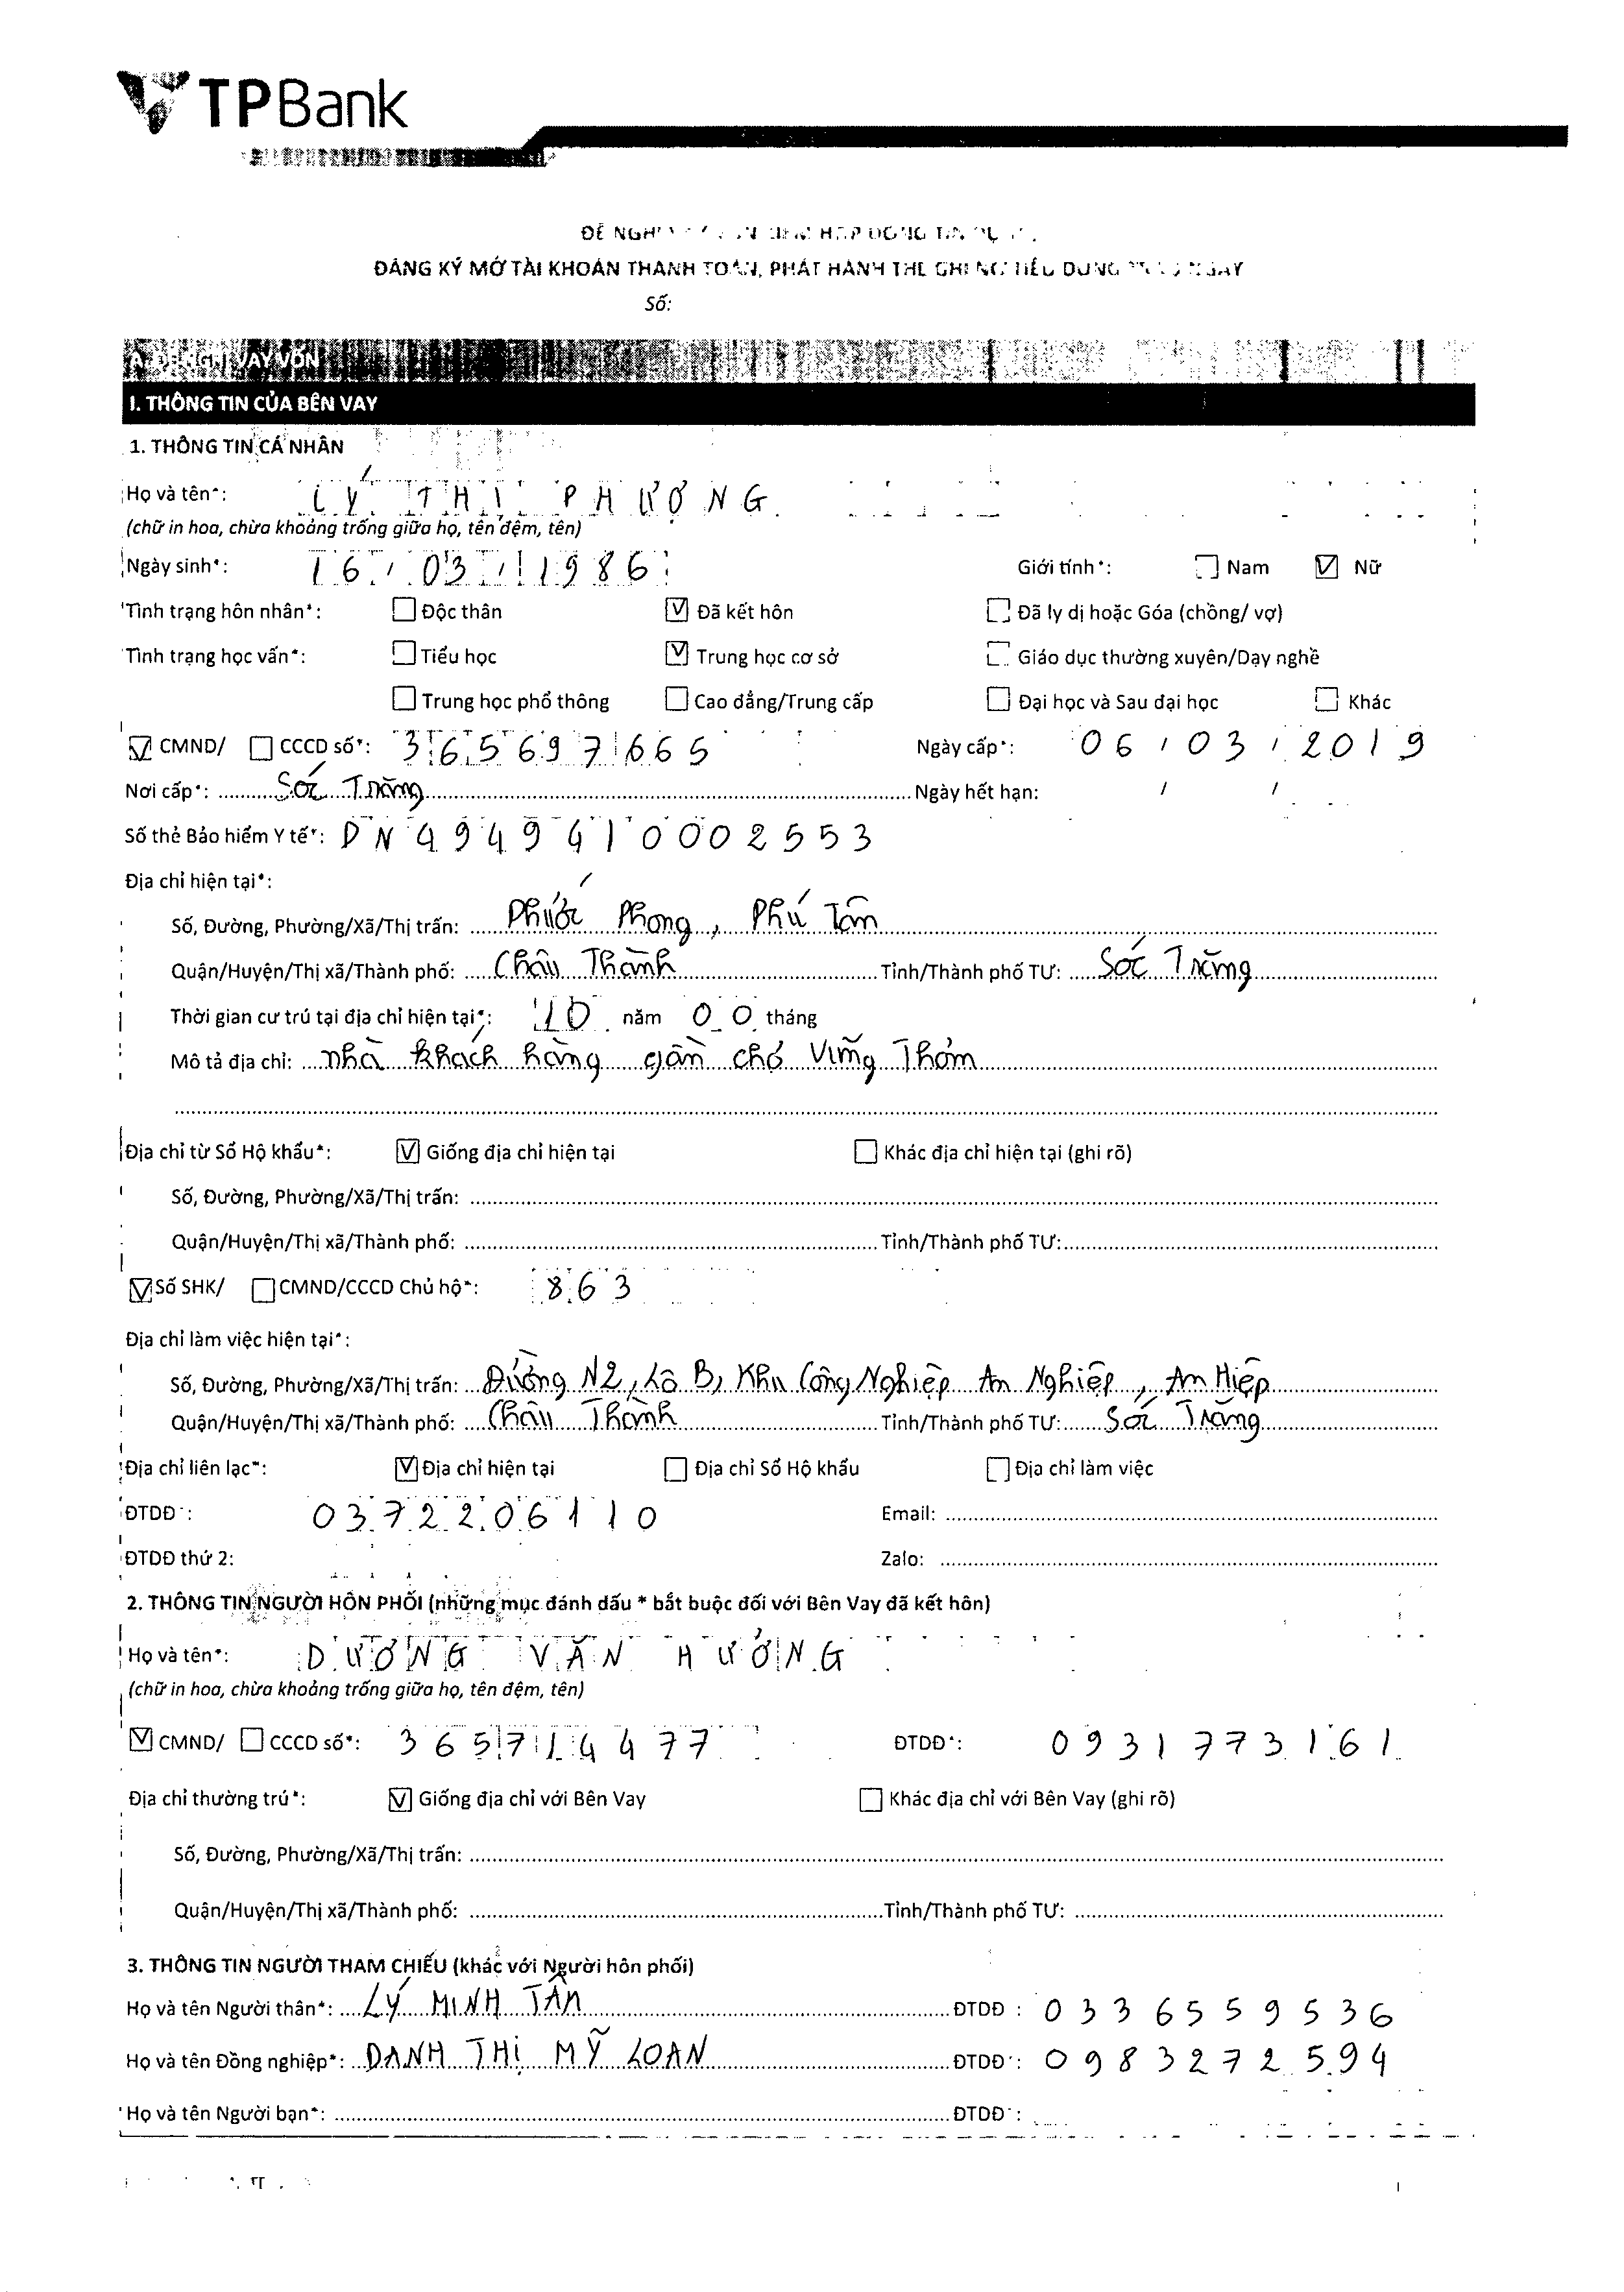 TPBank
ĐĂNG KÝ MỞ TÀI KHOẢN THANH TOÁN, PHÁT HÀNH THẺ GHI NỢ TIÊU DÙNG
Số:
A. ĐỀ NGHỊ VAY VỐN
I. THÔNG TIN CỦA BÊN VAY
1. THÔNG TIN CÁ NHÂN
Họ và tên*: LÝ THỊ PHƯỢNG
(chữ in hoa, chừa khoảng trống giữa họ, tên đệm, tên)
Ngày sinh*: 16/03/1986 Giới tính*: ☐ Nam ☑ Nữ
Tình trạng hôn nhân*: ☐ Độc thân ☑ Đã kết hôn ☐ Đã ly dị hoặc Góa (chồng/ vợ)
Tình trạng học vấn*: ☐ Tiểu học ☑ Trung học cơ sở ☐ Giáo dục thường xuyên/Dạy nghề
☐ Trung học phổ thông ☐ Cao đẳng/Trung cấp ☐ Đại học và Sau đại học ☐ Khác
☑ CMND/ ☐ CCCD số*: 365697665 Ngày cấp*: 06/03/2019
Nơi cấp*: Sóc Trăng Ngày hết hạn: / /
Số thẻ Bảo hiểm Y tế*: DN4949410002553
Địa chỉ hiện tại*:
Số, Đường, Phường/Xã/Thị trấn: Phước Phong, Phú Tân
Quận/Huyện/Thị xã/Thành phố: Châu Thành Tỉnh/Thành phố TƯ: Sóc Trăng
Thời gian cư trú tại địa chỉ hiện tại*: 10 năm 00 tháng
Mô tả địa chỉ: nhà khách hàng gần chợ Vũng Thơm
Địa chỉ từ Sổ Hộ khẩu*: ☑ Giống địa chỉ hiện tại ☐ Khác địa chỉ hiện tại (ghi rõ)
Số, Đường, Phường/Xã/Thị trấn:
Quận/Huyện/Thị xã/Thành phố: Tỉnh/Thành phố TƯ:
☑ Số SHK/ ☐ CMND/CCCD Chủ hộ*: 863
Địa chỉ làm việc hiện tại*:
Số, Đường, Phường/Xã/Thị trấn: Đường N2, Lô B, Khu Công Nghiệp An Nghiệp, An Hiệp
Quận/Huyện/Thị xã/Thành phố: Châu Thành Tỉnh/Thành phố TƯ: Sóc Trăng
Địa chỉ liên lạc*: ☑ Địa chỉ hiện tại ☐ Địa chỉ Sổ Hộ khẩu ☐ Địa chỉ làm việc
ĐTDĐ*: 0372206110 Email:
ĐTDĐ thứ 2: Zalo:
2. THÔNG TIN NGƯỜI HÔN PHỐI (những mục đánh dấu * bắt buộc đối với Bên Vay đã kết hôn)
Họ và tên*: DƯƠNG VĂN HƯỞNG
(chữ in hoa, chừa khoảng trống giữa họ, tên đệm, tên)
☑ CMND/ ☐ CCCD số*: 365714477 ĐTDĐ*: 0931773161
Địa chỉ thường trú*: ☑ Giống địa chỉ với Bên Vay ☐ Khác địa chỉ với Bên Vay (ghi rõ)
Số, Đường, Phường/Xã/Thị trấn:
Quận/Huyện/Thị xã/Thành phố: Tỉnh/Thành phố TƯ:
3. THÔNG TIN NGƯỜI THAM CHIẾU (khác với Người hôn phối)
Họ và tên Người thân*: LÝ MINH TÂN ĐTDĐ : 0336559536
Họ và tên Đồng nghiệp*: DANH THỊ MỸ LOAN ĐTDĐ*: 0983272594
Họ và tên Người bạn*: ĐTDĐ*: